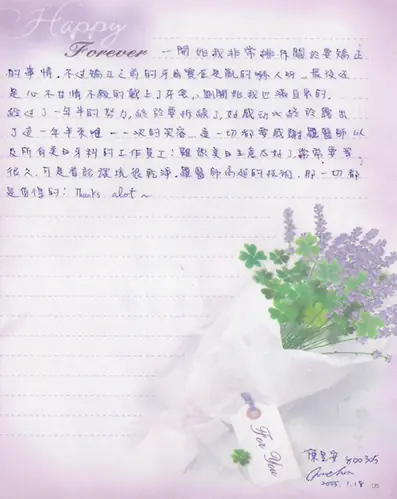 Happy
Forever 一開始我非常排斥關於要矯正
的事情。不過矯正之前的牙齒實在是亂的嚇人所以最後還
是心不甘情不願的戴上了牙套,剛開始我也滿自卑的。
經過了一年半的努力,終於要拆線了,好感动火終於露出
了這一年半來唯一一次的笑容。這一切都要感謝羅醫師以
及所有美日牙科的工作員工!雖然美日生意太好了,常常要等
很久,可是看診環境很乾淨。羅醫師高超的技術,那一切都
是值得的! Thanks alot~
For You
陳 安 400305
2005.1.18